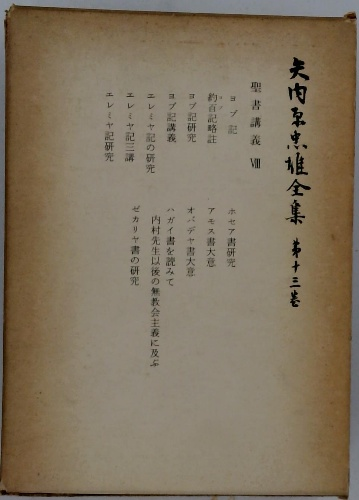 矢内原忠雄全集 第十三巻
聖書講義 Ⅷ
ヨブ記
約百記略註
ヨブ記研究
ヨブ記講義
エレミヤ記の研究
エレミヤ記三講
エレミヤ記研究
ホセア書研究
アモス書大意
オバデヤ書大意
ハガイ書を読みて
内村先生以後の無教会主義に及ぶ
ゼカリヤ書の研究